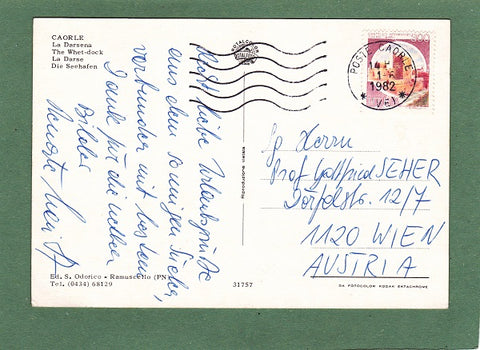 CAORLE
La Darsena
The Whet-dock
La Darse
Die Seehafen
Recht liebe Urlaubsgrüße
aus dem sonnigen Süden,
verbunden mit bestem
Dank für die netten
Bilder
Ed. S. Odorico - Ramuscello (PN)
Tel. (0434) 68129
31757
Riproduzione vietata
ROTALCOLOR
POSTE CAORLE
14
1982
* (VE) *
Herrn
Prof Gottfried SEHER
Dörfelstr. 12/7
1120 WIEN
AUSTRIA
DA FOTOCOLOR KODAK EKTACHROME